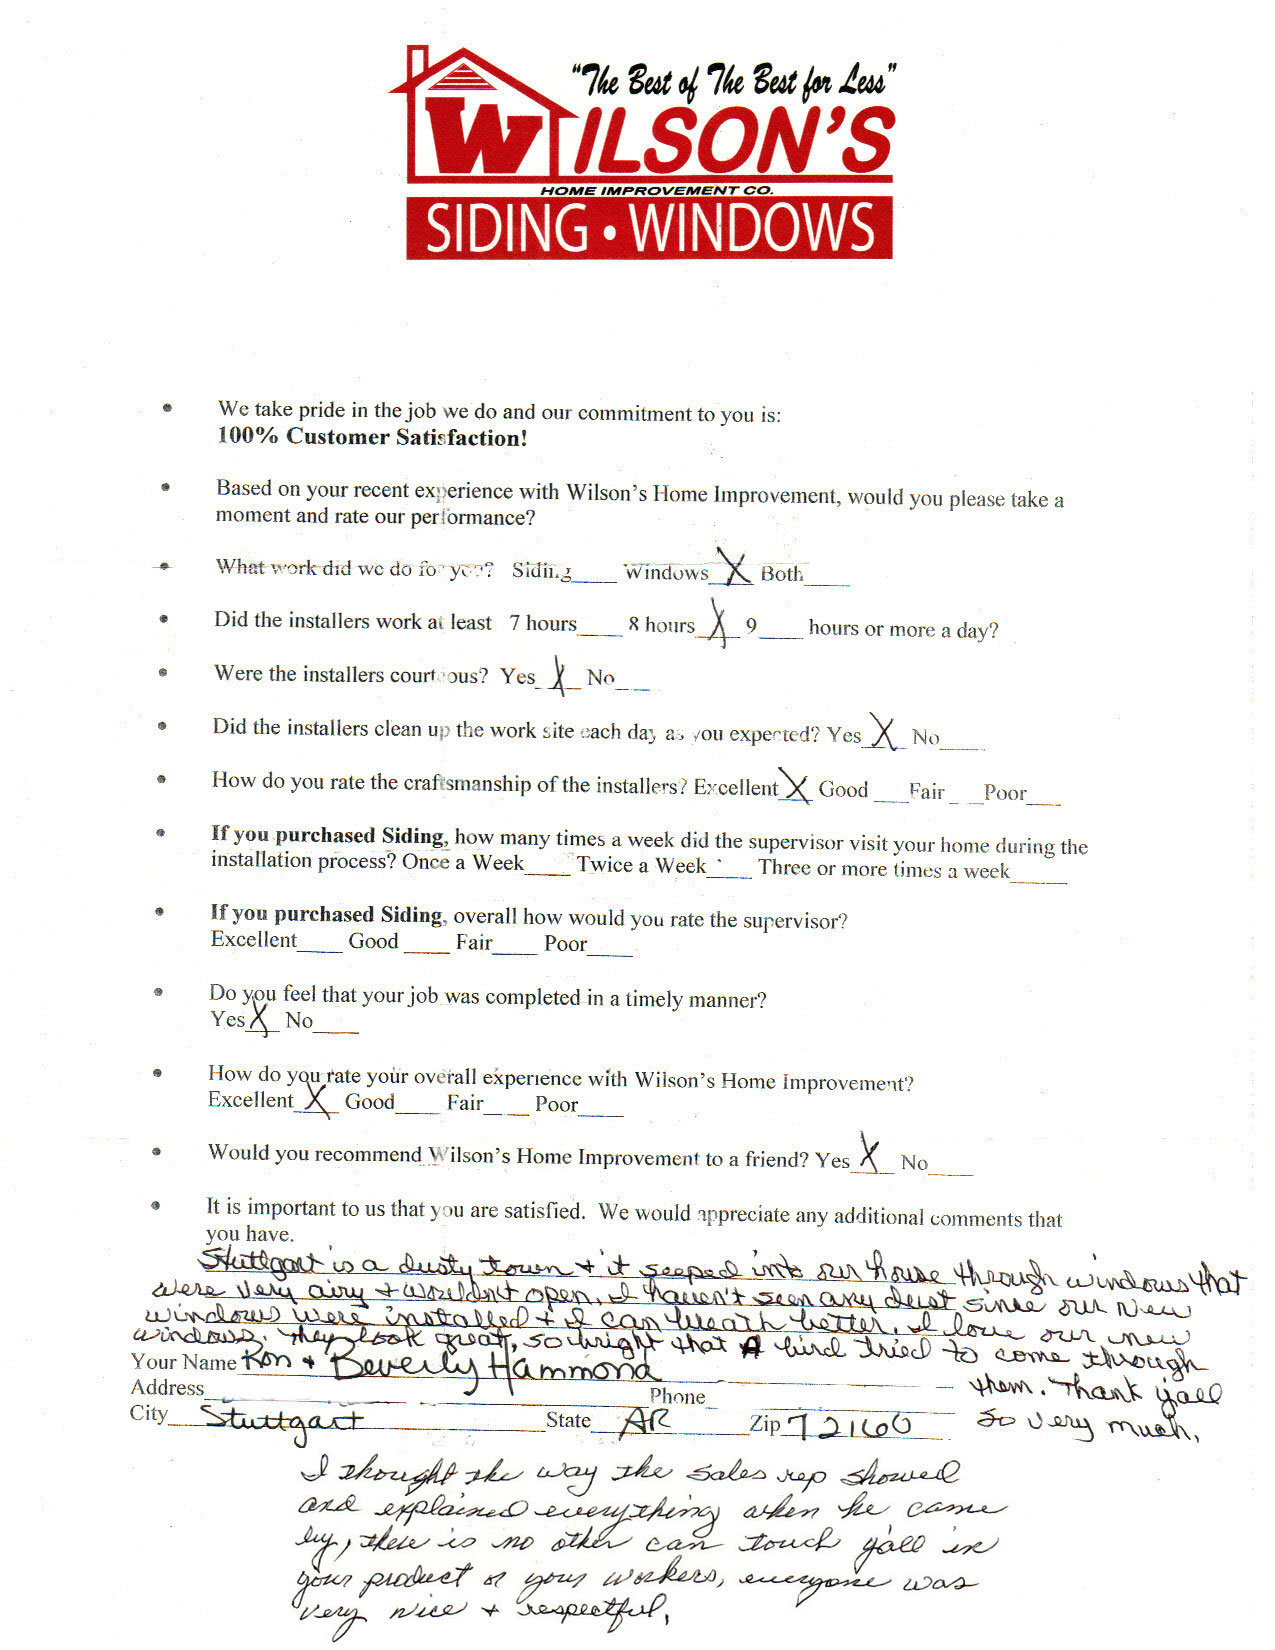 "The Best of The Best for Less"
WILSON'S
HOME IMPROVEMENT CO.
SIDING • WINDOWS
• We take pride in the job we do and our commitment to you is:
100% Customer Satisfaction!
• Based on your recent experience with Wilson's Home Improvement, would you please take a
moment and rate our performance?
• What work did we do for you? Siding____ Windows_X_ Both____
• Did the installers work at least 7 hours____ 8 hours_X_ 9____ hours or more a day?
• Were the installers courteous? Yes_X_ No___
• Did the installers clean up the work site each day as you expected? Yes_X_ No____
• How do you rate the craftsmanship of the installers? Excellent_X_ Good ___Fair_ _Poor___
• If you purchased Siding, how many times a week did the supervisor visit your home during the
installation process? Once a Week____ Twice a Week____ Three or more times a week_____
• If you purchased Siding, overall how would you rate the supervisor?
Excellent____ Good ____ Fair____ Poor____
• Do you feel that your job was completed in a timely manner?
Yes_X_ No____
• How do you rate your overall experience with Wilson's Home Improvement?
Excellent_X_ Good____ Fair____ Poor____
• Would you recommend Wilson's Home Improvement to a friend? Yes_X_ No____
• It is important to us that you are satisfied. We would appreciate any additional comments that
you have.
Stuttgart is a dusty town + it seeped into our house through windows that
were very airy + wouldn't open. I haven't seen any dust since our new
windows were installed + I can breath better. I love our new
windows. They look great, so bright that A bird tried to come through
them. Thank y'all
so very much.
Your Name Ron + Beverly Hammond
Address____ Phone____
City Stuttgart State AR Zip 72160
I thought the way the sales rep showed
and explained everything when he came
by, there is no other can touch y'all in
your product or your workers, everyone was
very nice + respectful.